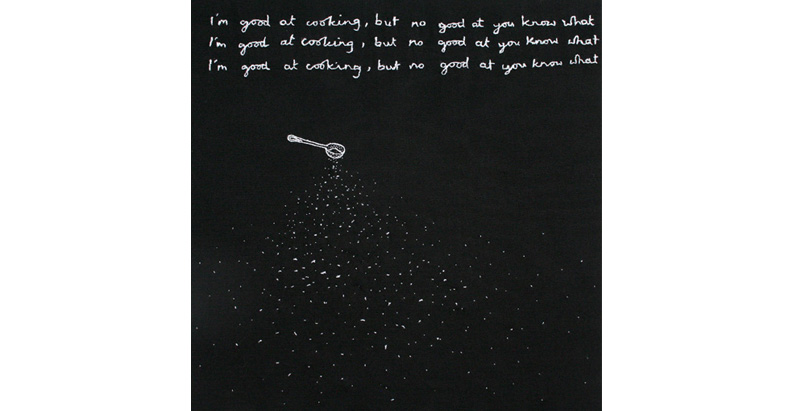 I'm good at cooking, but no good at you know what
I'm good at cooking, but no good at you know what
I'm good at cooking, but no good at you know what